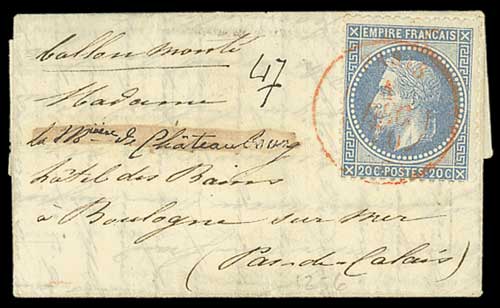 EMPIRE FRANÇAIS
ballon monté
47
Madame
la Mise de Châteaubourg
hôtel des Bains
20 C - POSTES - 20 C
à Boulogne sur mer
(Pas-de-Calais)